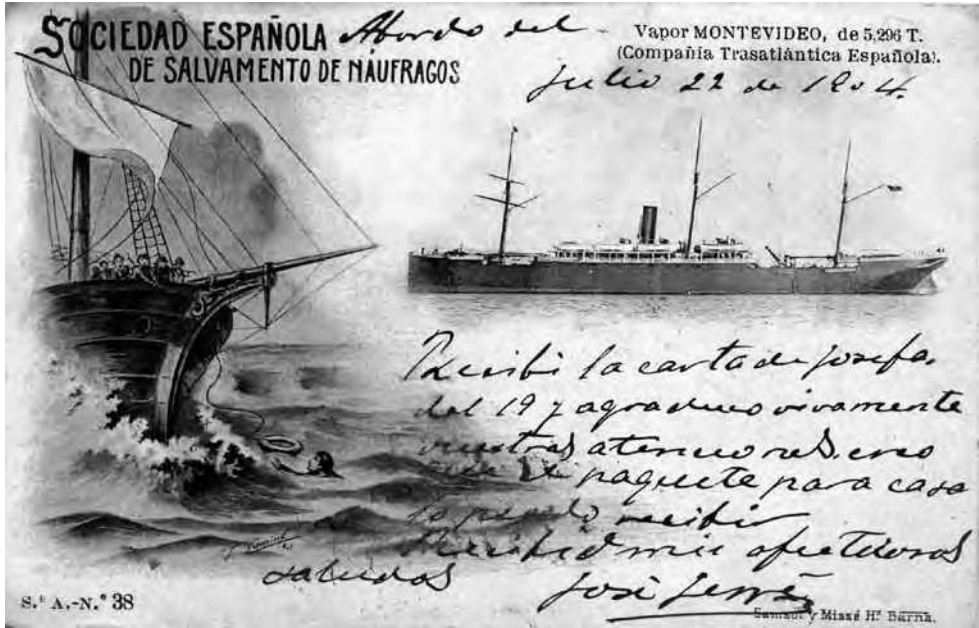 SOCIEDAD ESPAÑOLA
DE SALVAMENTO DE NÁUFRAGOS
Abordo del
Vapor MONTEVIDEO, de 5,296 T.
(Compañía Trasatlántica Española).
Julio 22 de 1904.
Recibi la carta de Josefa
del 19 y agradezco vivamente
vuestras atenciones. creo
que el paquete para casa
lo puedo recibir
Recibid mis afectuosos
saludos
José
S.ª A.-N.º 38
y Missé Hˢ Barna.